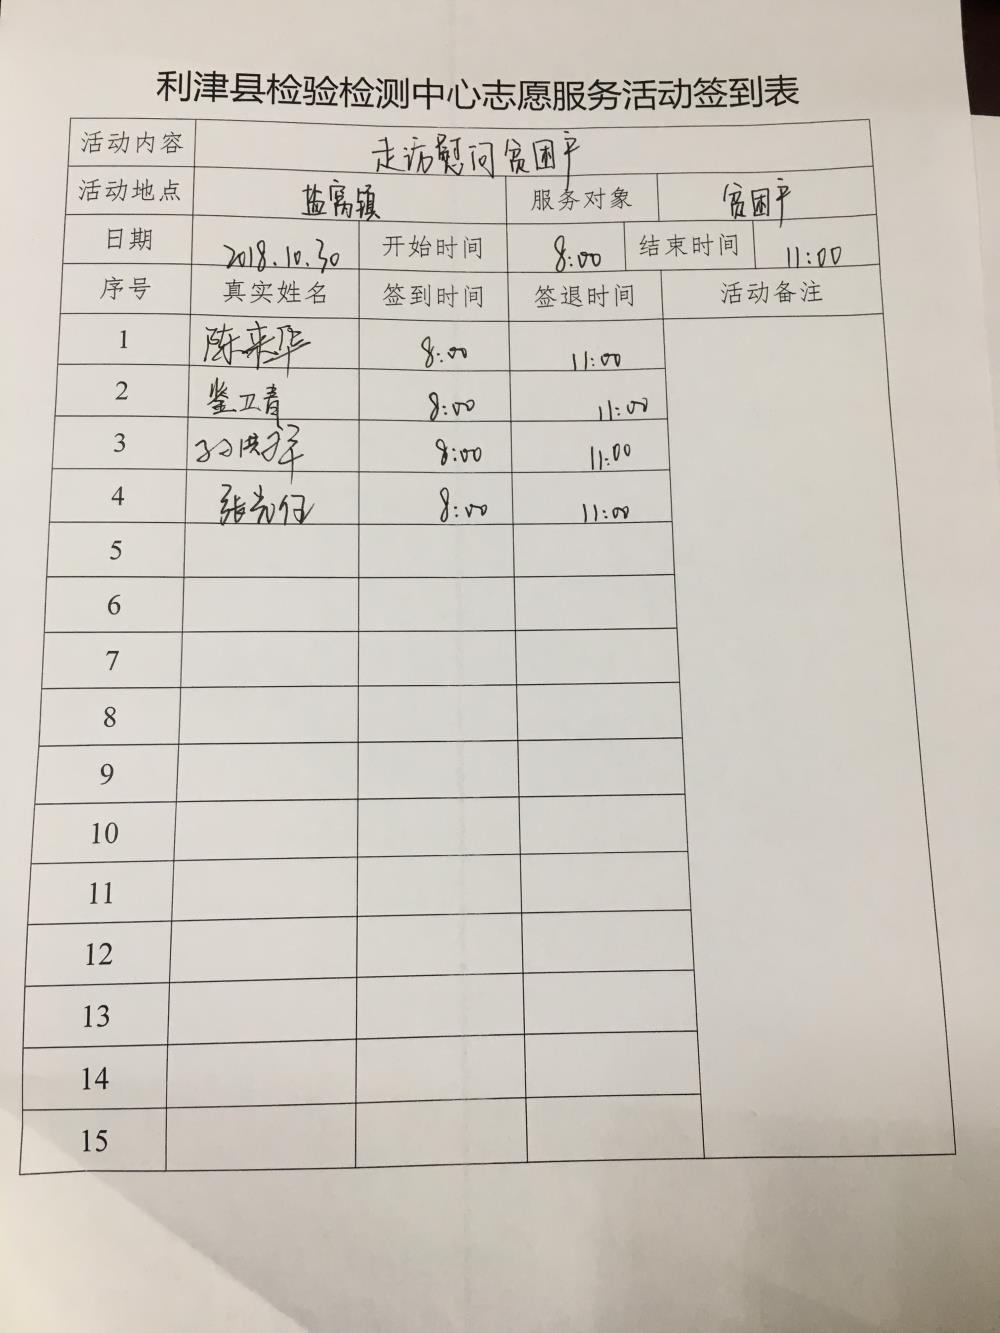 利津县检验检测中心志愿服务活动签到表
活动内容 走访慰问贫困户
活动地点 盐窝镇 服务对象 贫困户
日期 2018.10.30 开始时间 8:00 结束时间 11:00
序号 真实姓名 签到时间 签退时间 活动备注
1 陈来华 8:00 11:00
2 卫青 8:00 11:00
3 孙洪军 8:00 11:00
4 张光伍 8:00 11:00
5
6
7
8
9
10
11
12
13
14
15